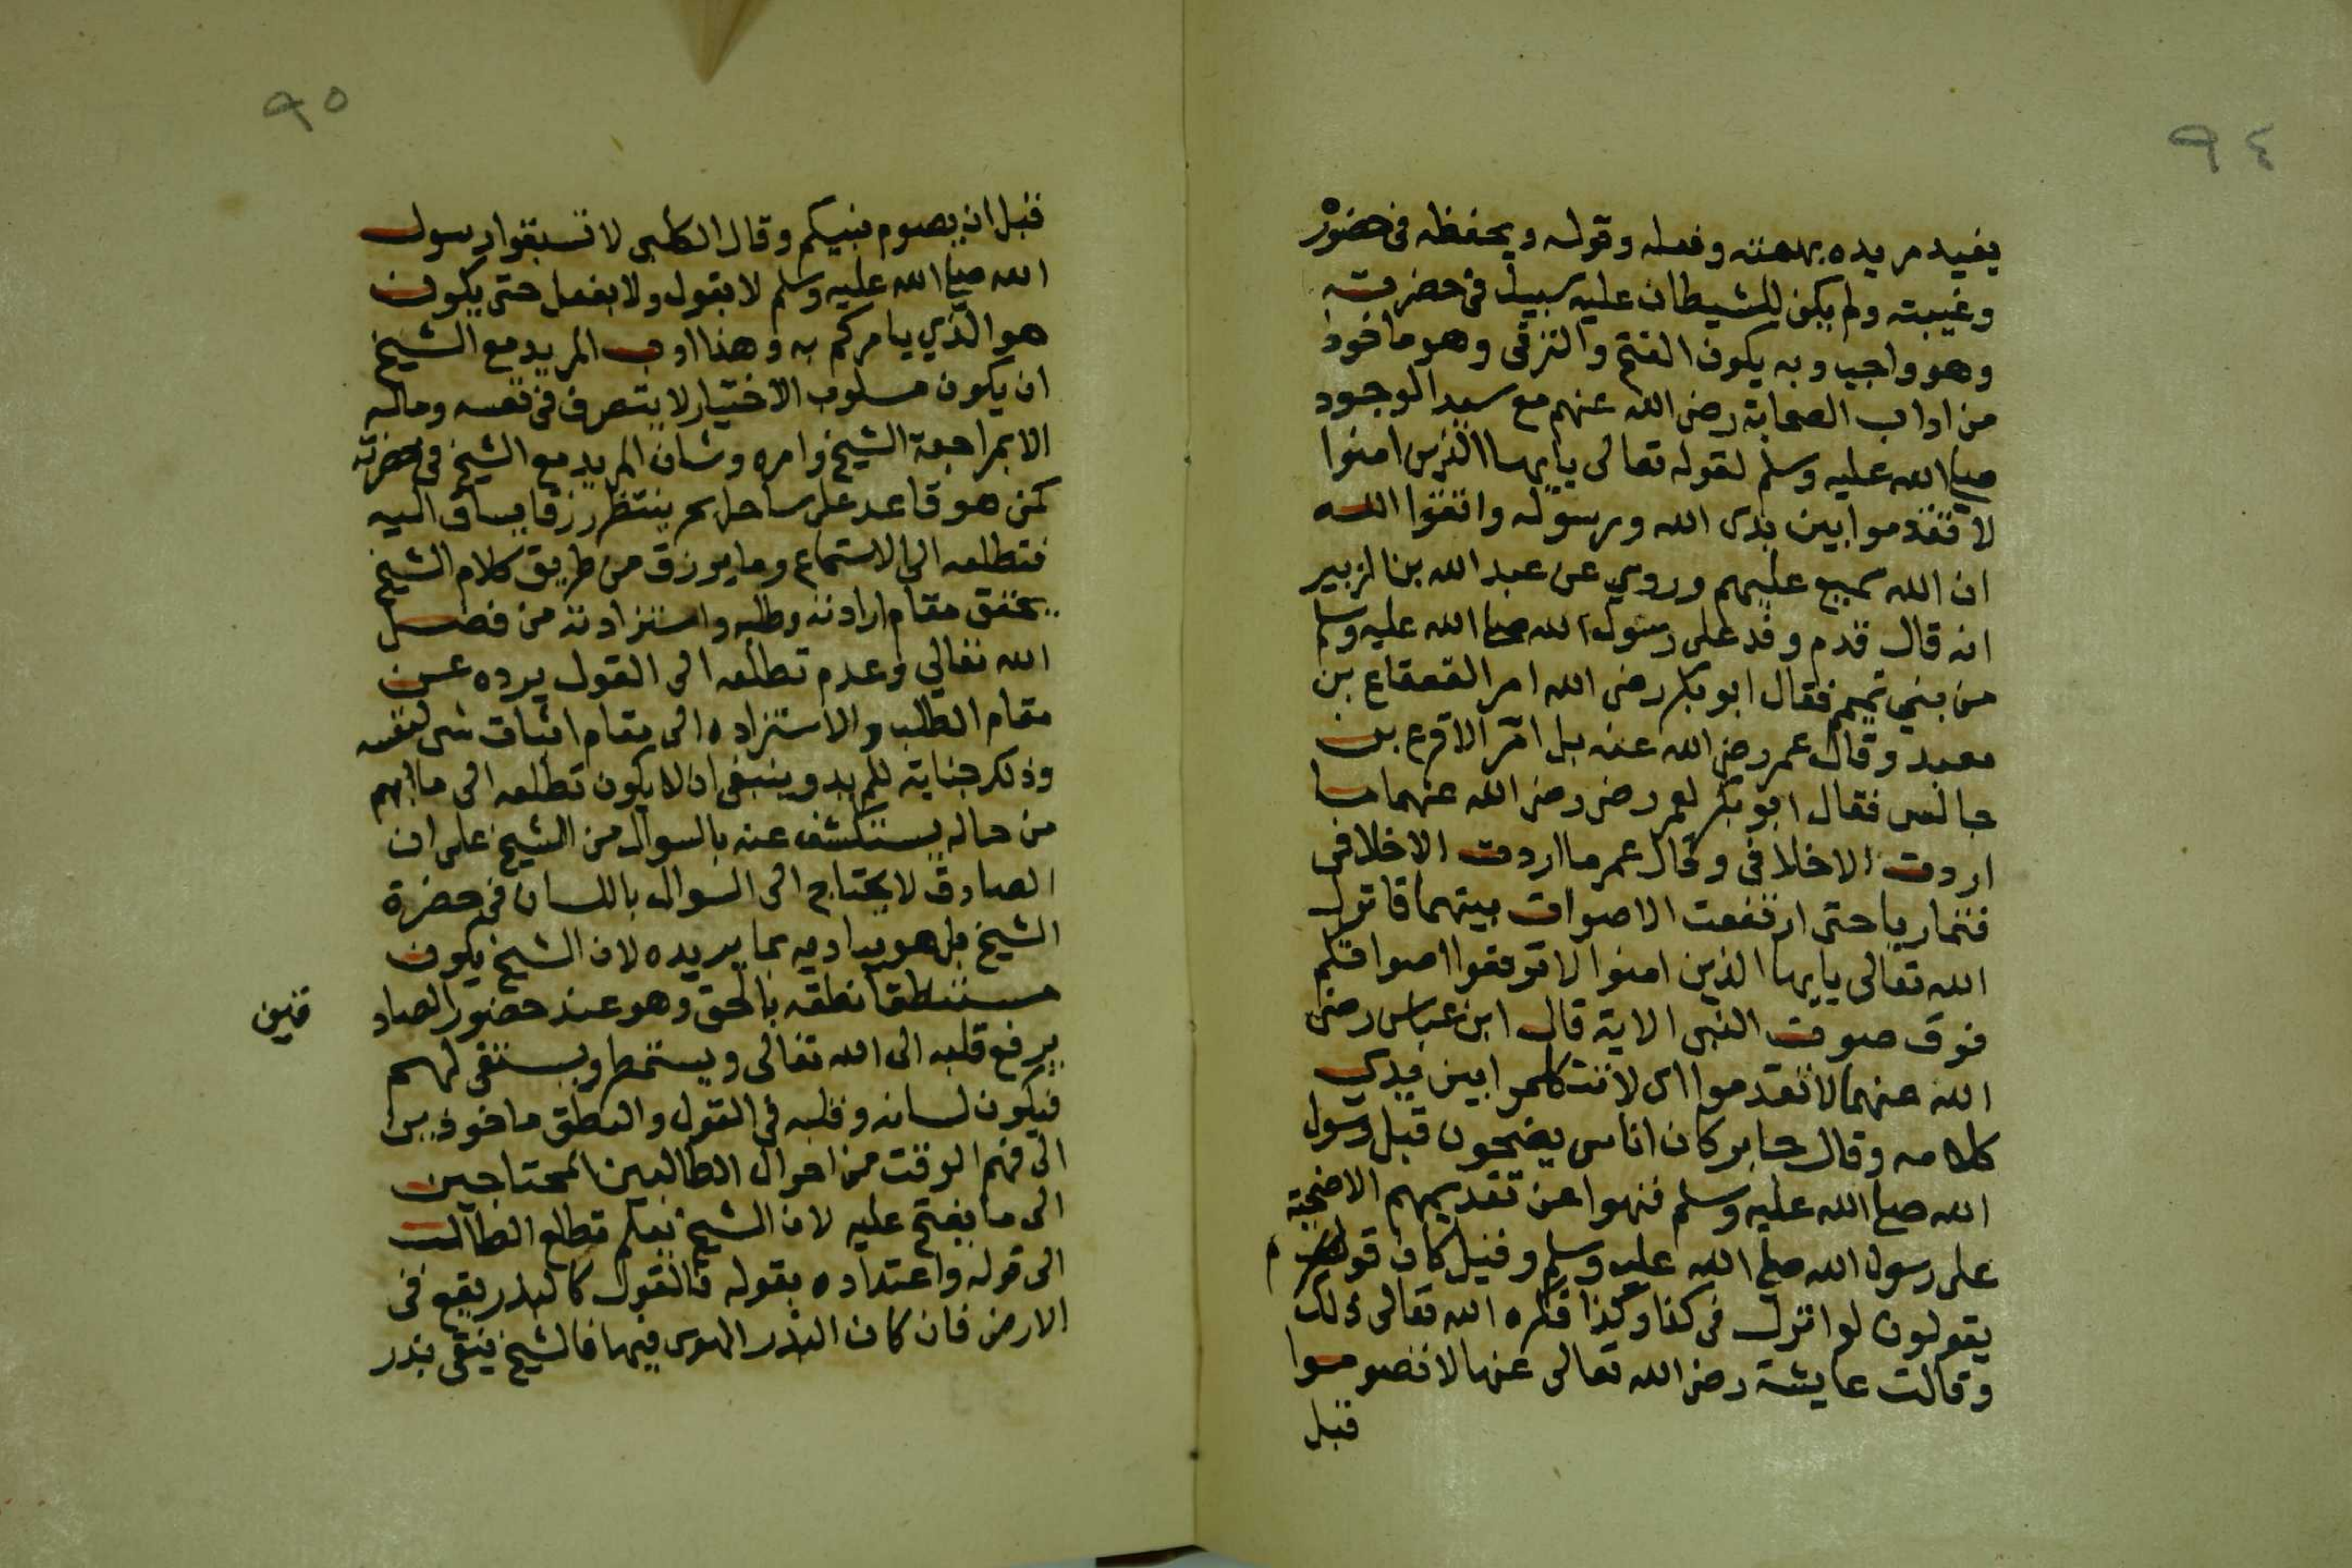 ٩٤
يفيد مريده بهمته وفعله وقوله ويحفظه فى حضوره
وغيبته ولم يكن للشيطان عليه سبيل فى حضرته
وهو واجب وبه يكون الفتح والترقى وهو ماخوذ
من اداب الصحابة رضى الله عنهم مع سيد الوجود
صلى الله عليه وسلم لقوله تعالى يايها الذين امنوا
لا تقدموا بين يدى الله ورسوله واتقوا الله
ان الله سميع عليهم وروي عن عبد الله بن الزبير
انه قال قدم وفد على رسول الله صلى الله عليه وسلم
من بني تميم فقال ابو بكر رضى الله امر القعقاع بن
معبد وقال عمر رضى الله عنه بل امر الاقرع بن
حابس فقال ابو بكر لعمر رضى رضى الله عنهما ما
اردت الا خلافى وقال عمر ما اردت الا خلافى
فتماريا حتى ارتفعت الاصوات بينهما فانزل
الله تعالى يايها الذين امنوا لا ترفعوا اصواتكم
فوق صوت النبى الاية قال ابن عباس رضى
الله عنهما لا تقدموا اى لا تتكلموا بين يدي
كلامه وقال جابر كان اناس يضحون قبل رسول
الله صلى الله عليه وسلم فنهوا عن تقديمهم الاضحية
على رسول الله صلى الله عليه وسلم وقيل كان قوم
يقولون لو انزل فى كذا وكذا فكره الله تعالى ذلك
وقالت عايشة رضى الله تعالى عنها لا تصوموا
قبل
٩٥
قبل ان يصوم نبيكم وقال الكلبى لا تسبقوا رسول
الله صلى الله عليه وسلم لا بقول ولا بفعل حتى يكون
هو الذي يامركم به وهذا ادب المريد مع الشيخ
ان يكون مسلوب الاختيار لا يتصرف فى نفسه وماله
الا بمراجعة الشيخ وامره وشان المريد مع الشيخ فى حضرته
كمن هو قاعد على ساحل بحر ينتظر رزقا يساق اليه
فتطلعه الى الاستماع وما يرزق من طريق كلام الشيخ
يحقق مقام ارادته وطلبه واستزادته من فضل
الله تعالي وعدم تطلعه الى القول يرده عن
مقام الطلب والاستزاده الى مقام اثبات شى لنفسه
وذلك جناية للمريد وينبغى ان لا يكون تطلعه الى ما ابهم
من حاله يستكشف عنه بالسوال من الشيخ على ان
الصادق لا يحتاج الى السوال باللسان فى حضرة
الشيخ بل هو يباديه بما يريده لان الشيخ يكون
مستنطقا نطقه بالحق وهو عند حضور الصاد
قين
يرفع قلبه الى الله تعالى ويستمطر ويستقى لهم
فيكون لسانه وقلبه فى القول والنطق ماخوذين
الى فهم الوقت من احوال الطالبين المحتاجين
الى ما يفتح عليه لان الشيخ يعلم تطلع الطالب
الى قوله واعتداده بقوله فالقول كالبذر يقع فى
الارض فان كان البذر الهوى فيها فالشيخ فينقى بذر